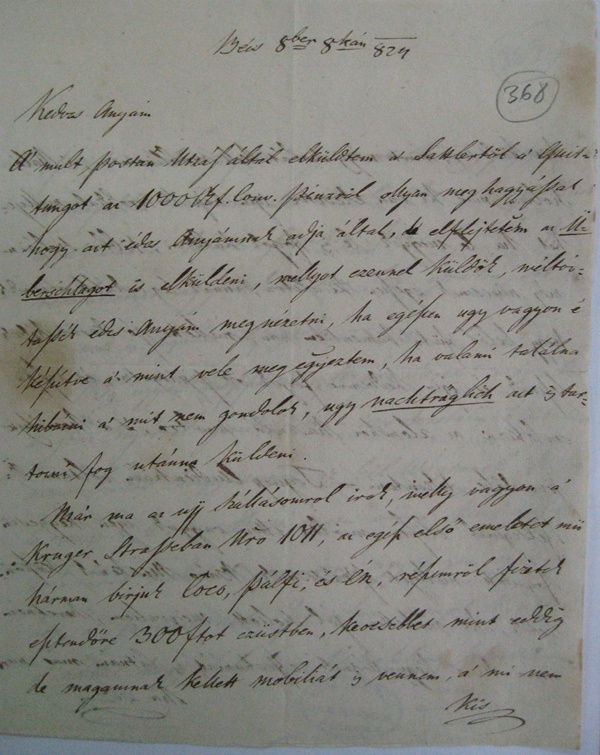 Bécs 8ber 8kán 824
368
Kedves Anyám
A mult postan Utzaf által elküldtem a Sattlertöl a Quit-
tungot az 1000 f. Conv. pénzröl ollyan meg hagyással
hogy azt édes Anyámnak adja által, de elfelejtettem az Ü-
berschlagot is elküldeni, mellyet ezennel küldök, méltóz-
tassék édes Anyám meg nézetni, ha egészen ugy vagyon é
készitve á mint velé meg egyeztem, ha valami találna
hibázni á mit nem gondolok, ugy nachträglich azt is tar-
tozni fog utánna küldeni.
Már ma az ujj szállásomrol irok, melly vagyon á
Kruger Strasseban Nro 1011, az egész első emeletet mü
hárman birjuk Coco, Pálfi, és én, részemről fizetek
esztendőre 300 ftot ezüstben, kevesebbet mint eddig
de magamnak kellett mobiliát is vennem, á mi nem
Kis